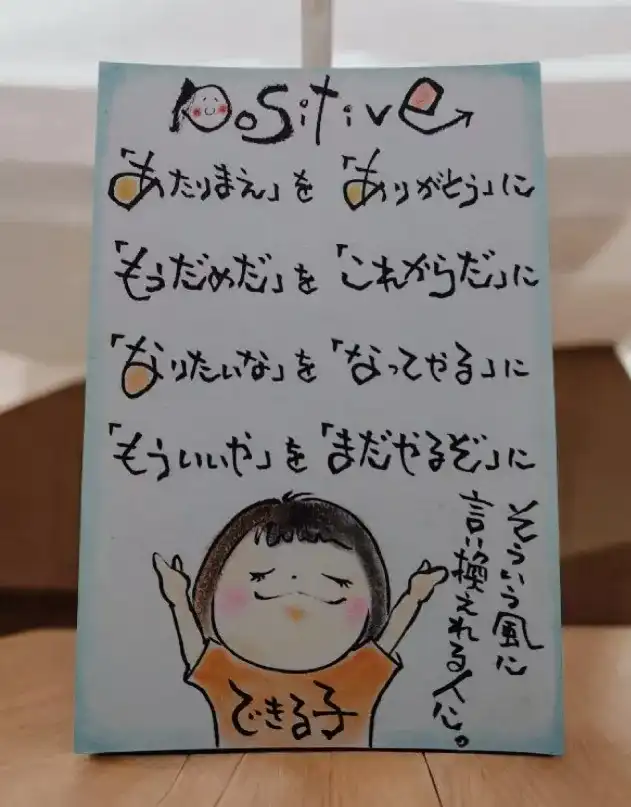 Positive
「あたりまえ」を「ありがとう」に
「もうだめだ」を「これからだ」に
「なりたいな」を「なってやる」に
「もういいや」を「まだやるぞ」に
そういう風に
言い換えれる人に。
できる子